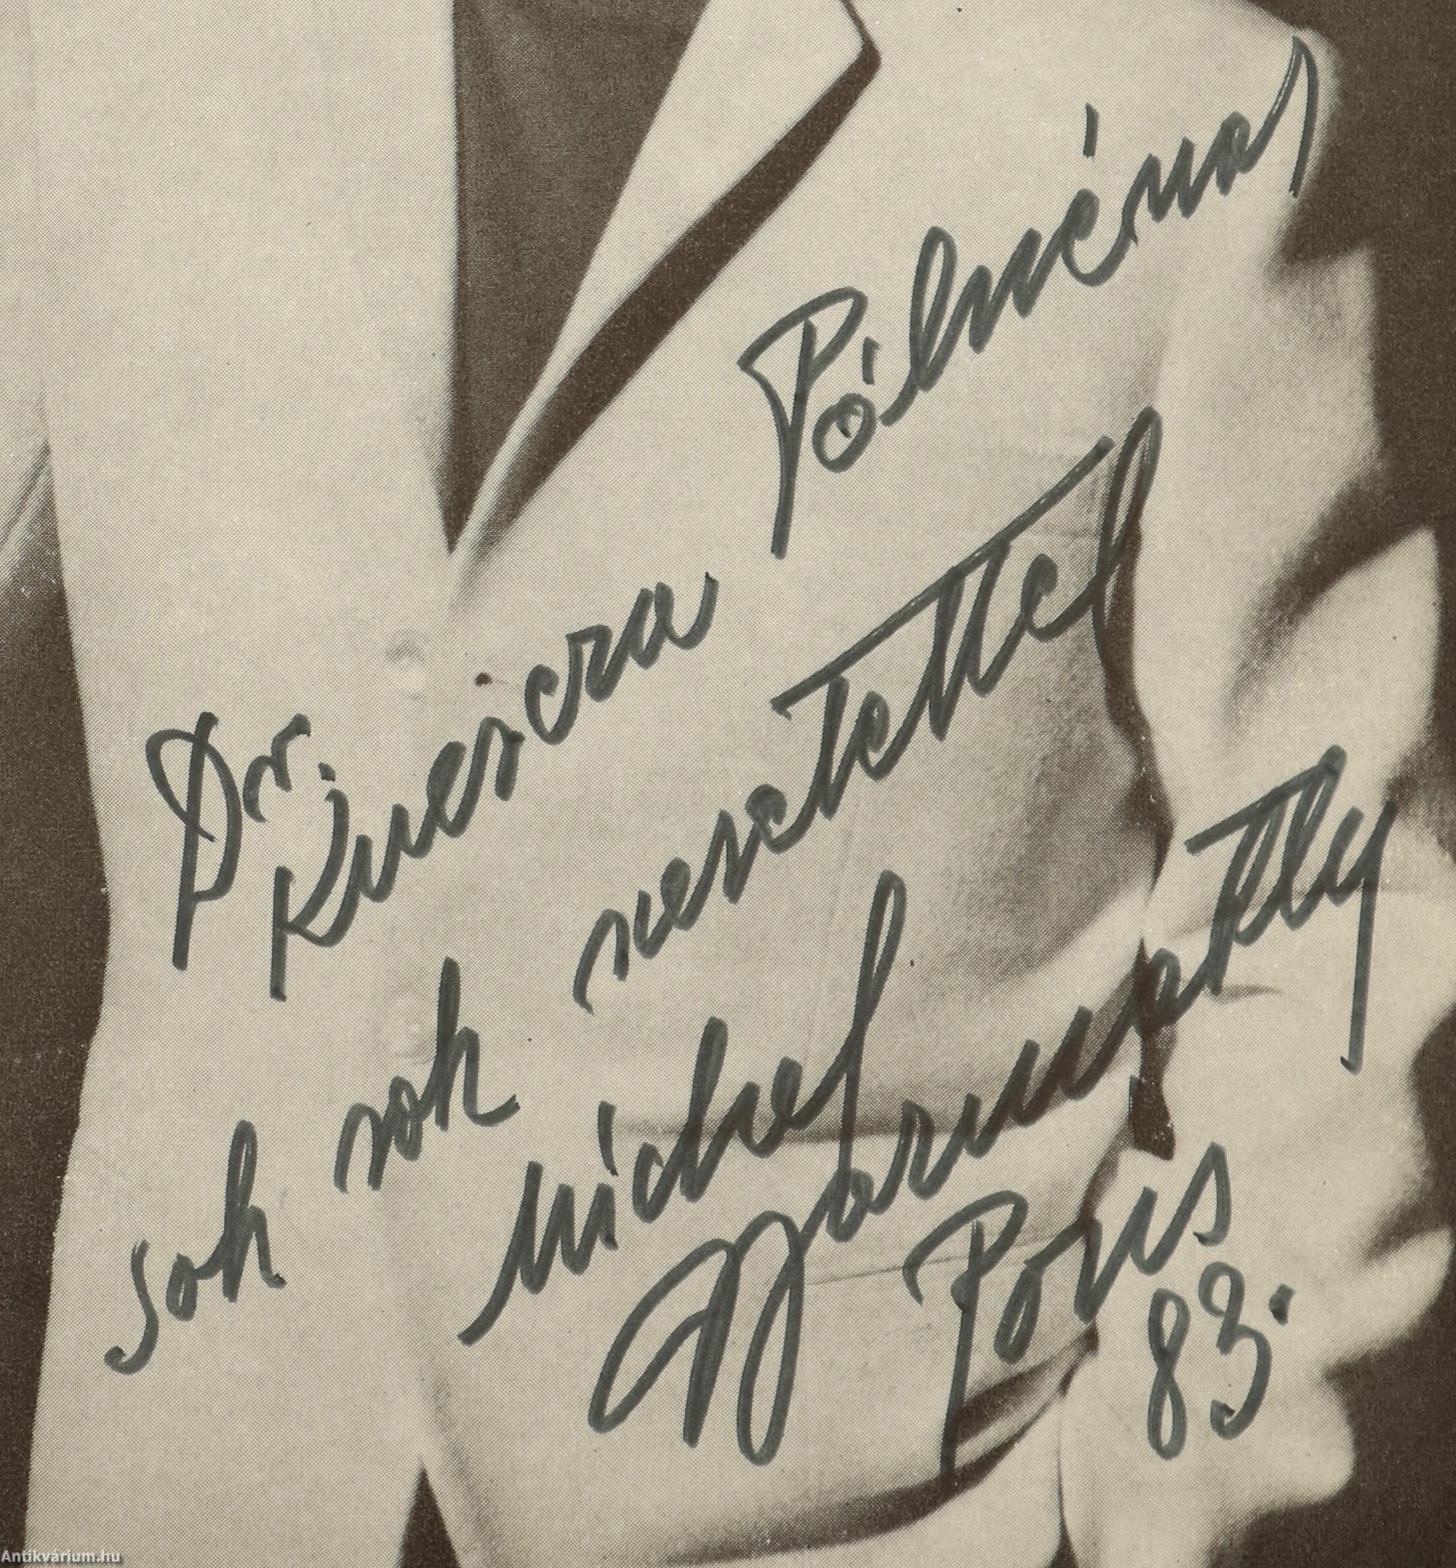 Dr.
Pálnénak
sok sok szeretettel
Michel
Gyarmathy
Paris
83.
Antikvárium.hu